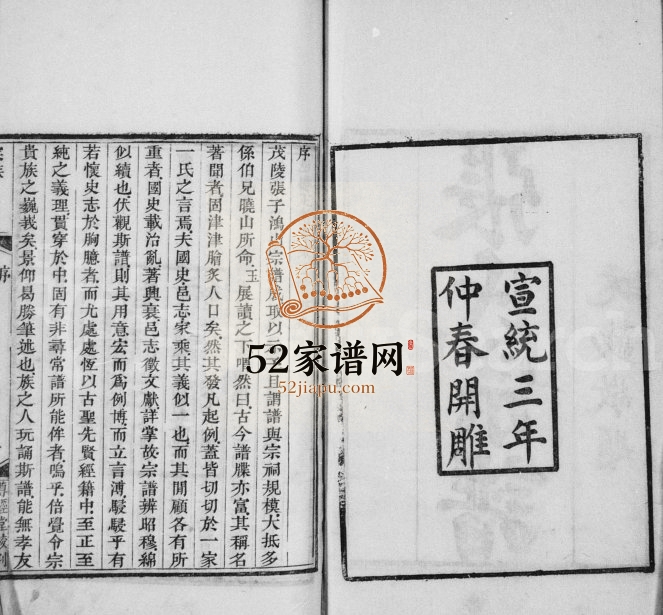 宣統三年
仲春開雕
序
茂陵張子鴻
宗譜成取以示
且謂譜與宗祠規模大抵多
係伯兄曉山所命玉
展讀之下喟然曰古今譜牒亦富其稱名
著聞者固津津膾炙人口矣然其發凡起例蓋皆切切於一家
一氏之言焉夫國史邑志家乘其義似一也而其間顧各有所
重者國史載治亂著興衰邑志徵文獻詳掌故宗譜辨昭穆綿
似續也伏觀斯譜則其用意宏而為例博而立言溥駸駸乎有
若懷史志於胸臆者而尤處處恆以古聖先賢經籍中至正至
純之義理貫穿於中固有非尋常譜所能侔者嗚乎倍覺令宗
貴族之巍峩矣景仰曷勝筆述也族之人玩誦斯譜能無孝友
序
52家谱网
52jiapu.com